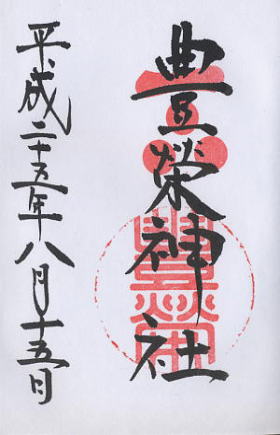 豊榮神社
平成二十五年八月十五日